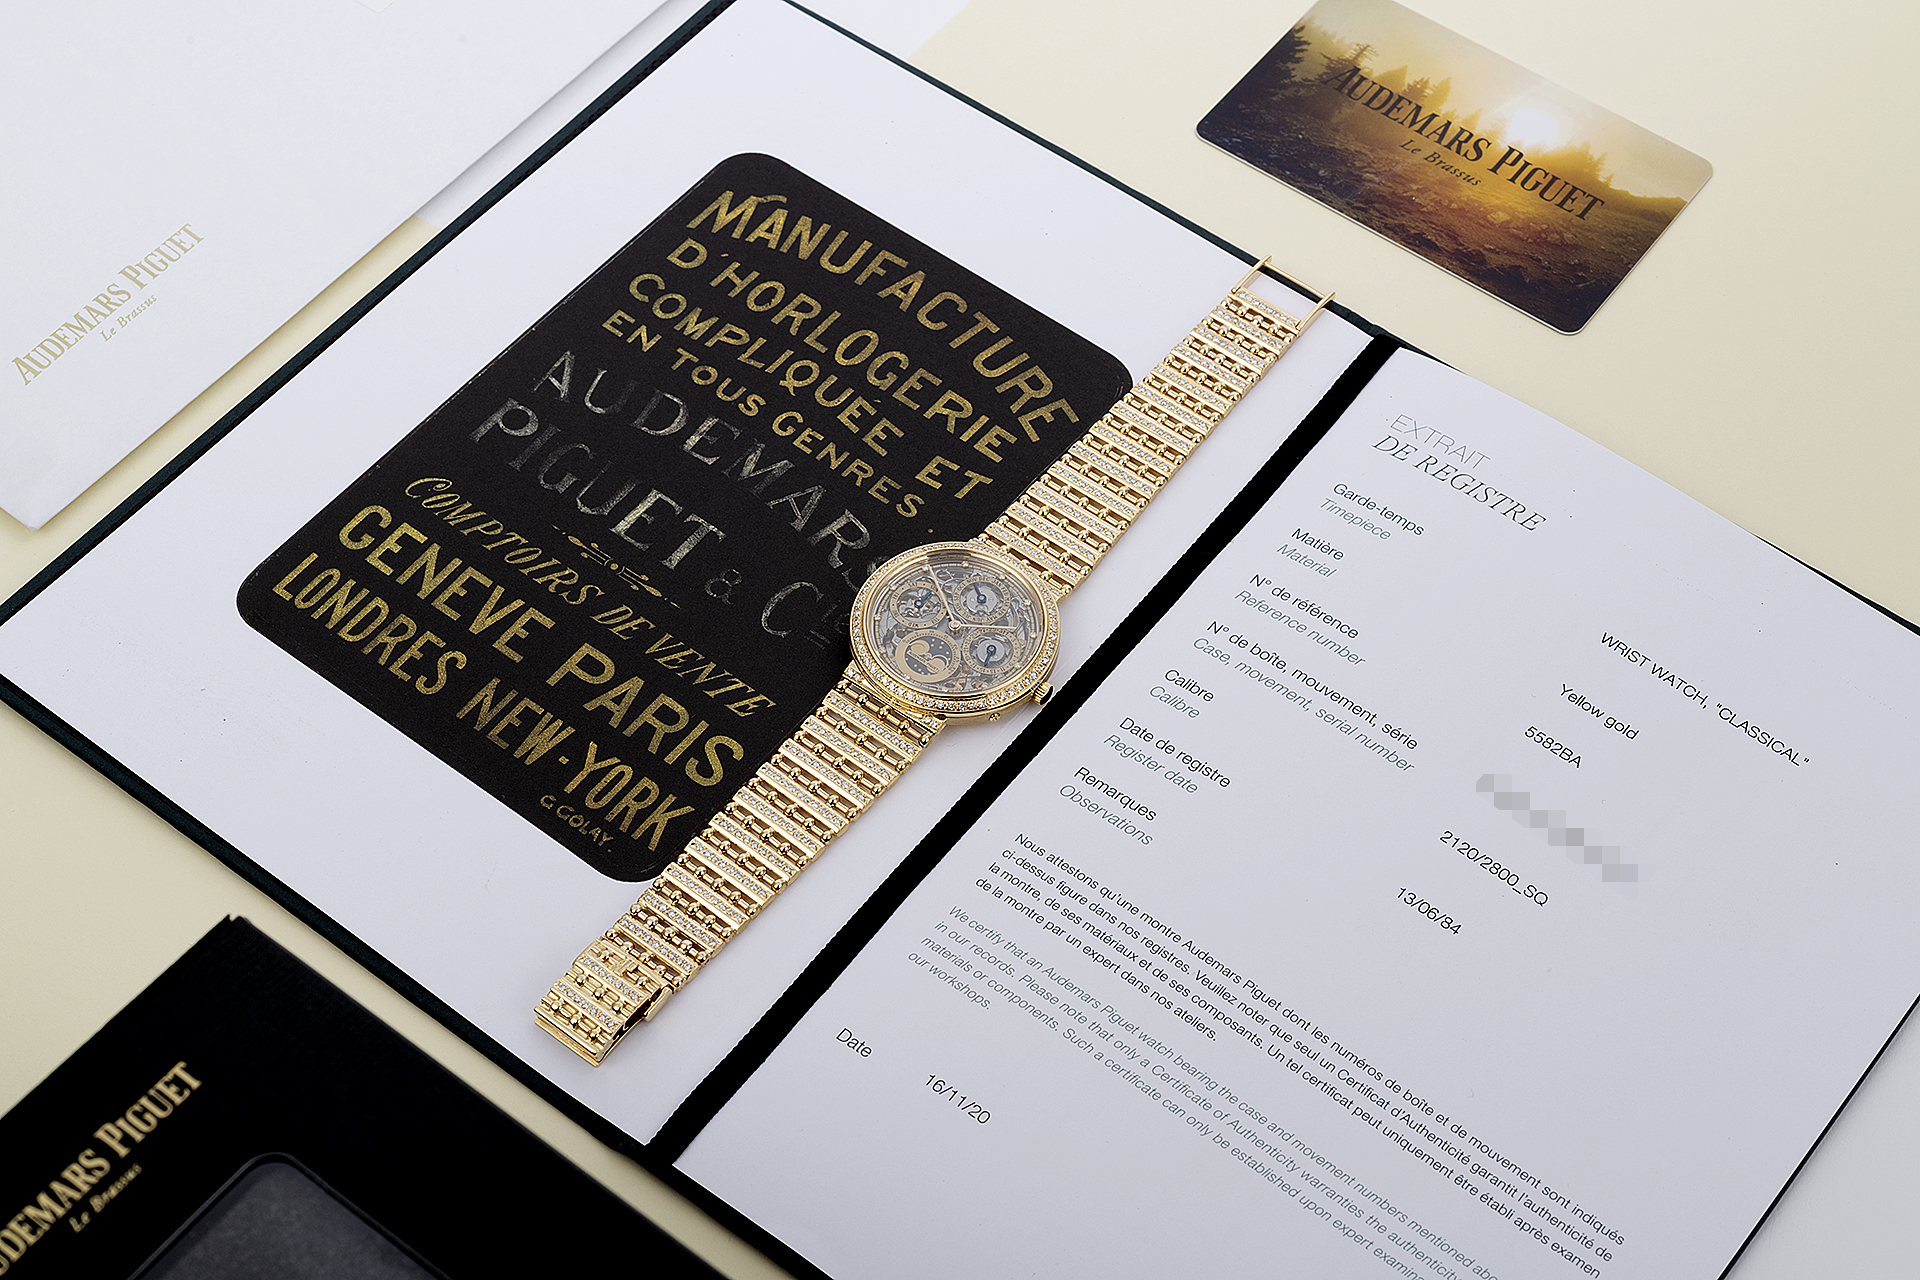 AUDEMARS PIGUET
Le Brassus
AUDEMARS PIGUET
Le Brassus
MANUFACTURE
D'HORLOGERIE
COMPLIQUÉE ET
EN TOUS GENRES.
AUDEMARS
PIGUET & Cie
COMPTOIRS DE VENTE
GENEVE PARIS
LONDRES NEW-YORK
G. GOLAY.
EXTRAIT
DE REGISTRE
Garde-temps
Timepiece
WRIST WATCH, "CLASSICAL"
Matière
Material
Yellow gold
N° de référence
Reference number
5582BA
N° de boîte, mouvement, série
Case, movement, serial number
Calibre
Calibre
2120/2800_SQ
Date de registre
Register date
13/06/84
Remarques
Observations
Nous attestons qu'une montre Audemars Piguet dont les numéros de boîte et de mouvement sont indiqués
ci-dessus figure dans nos registres. Veuillez noter que seul un Certificat d'Authenticité garantit l'authenticité de
la montre, de ses matériaux et de ses composants. Un tel certificat peut uniquement être établi après examen
de la montre par un expert dans nos ateliers.
We certify that an Audemars Piguet watch bearing the case and movement numbers mentioned abo
in our records. Please note that only a Certificate of Authenticity warranties the authenticity
materials or components. Such a certificate can only be established upon expert examin
our workshops.
Date
16/11/20
AUDEMARS PIGUET
Le Brassus